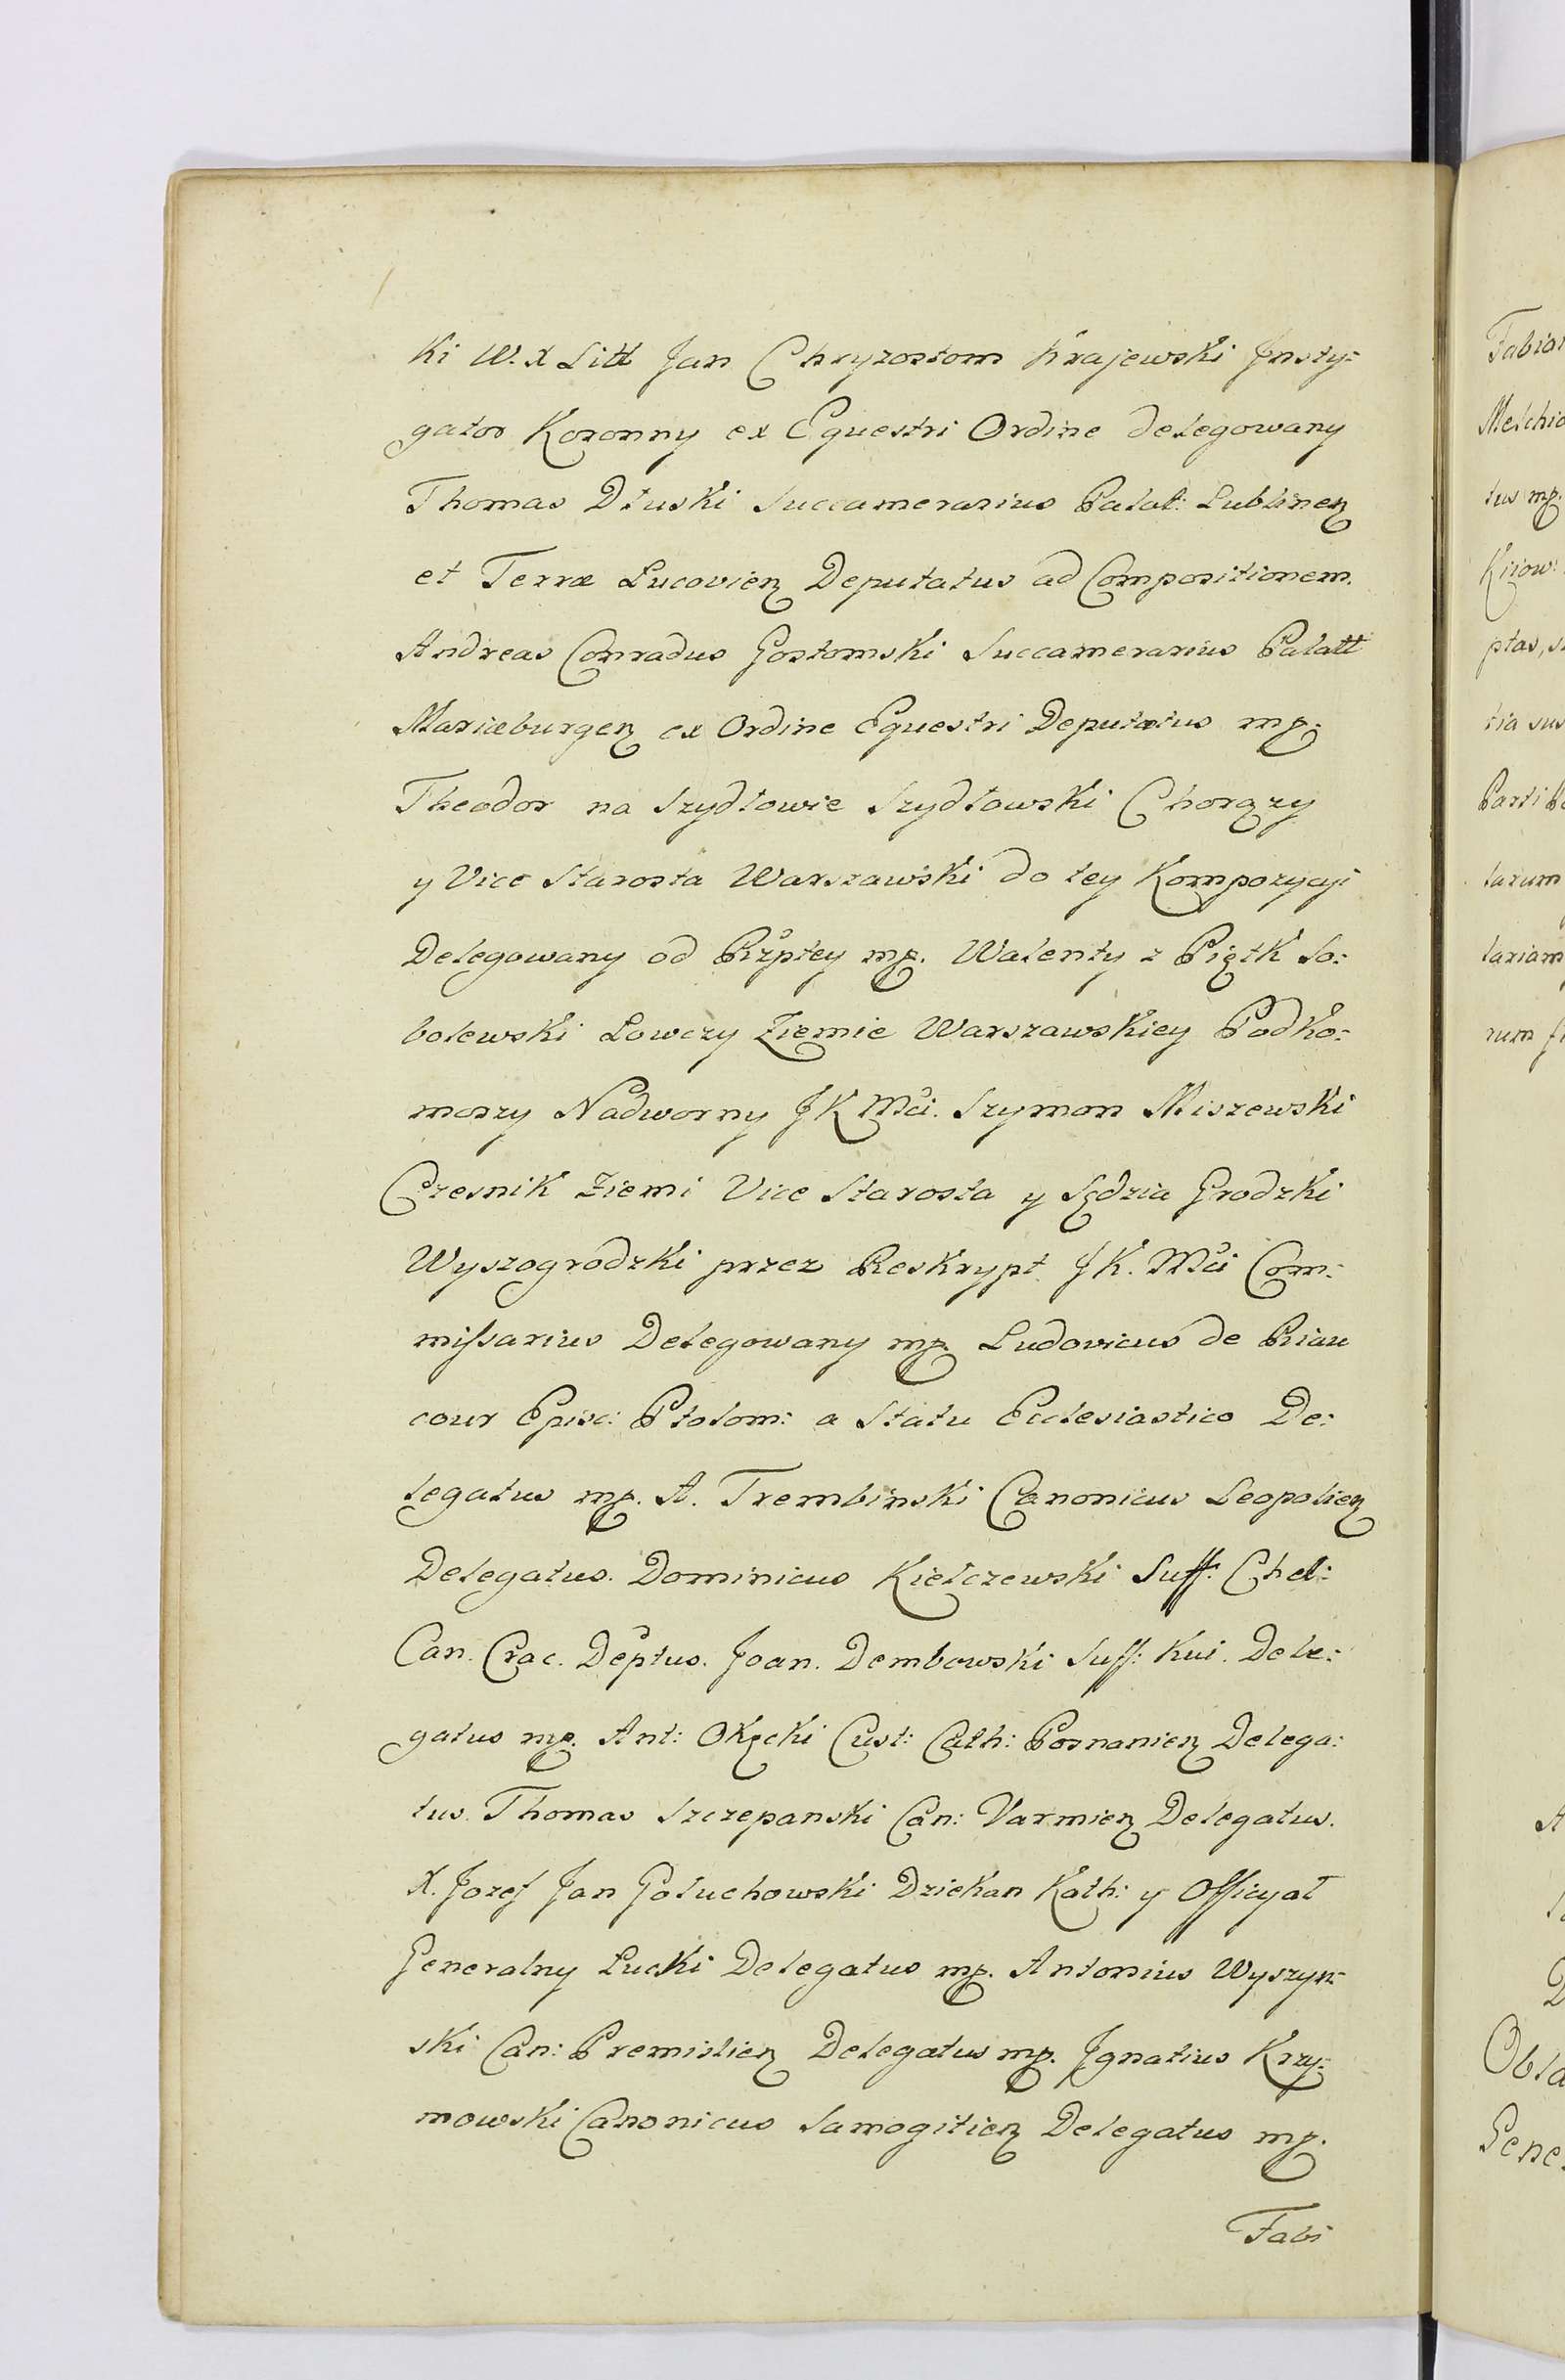 ki W. X Litt Jan Chryzostom Krajewski Jnsty:
gator Koronny ex Equestri Ordine delegowany
Thomas Dłuski Succamerarius Palat: Lublinen
et Terræ Lucovien Deputatus ad Compositionem.
Andreas Conradus Gostomski Succamerarius Palatt
Mariæburgen ex Ordine Equestri Deputatus mp.
Theodor na Szydłowie Szydłowski Chorąży
y Vice Starosta Warszawski do tey Kompozycyi
Delegowany od Rzptey mp. Walenty z Piątk So:
bolewski Łowczy Ziemie Warszawskiey Podko:
morzy Nadworny J K Mci. Szymon Miszewski
Czesnik Ziemi Vice Starosta y Sędzia Grodzki
Wyszogrodzki przez Reskrypt J K. Mci Com:
missarius Delegowany mp. Ludovicus de Riau
cour Episc: Ptolom: a Statu Ecclesiastico De:
legatus mp. A. Trembinski Canonicus Leopolien
Delegatus. Dominicus Kiełczewski Suff: Chel:
Can. Crac. Deptus. Joan. Dembowski Suff: Kui. Dele:
gatus mp. Ant: Okęcki Cust: Cath: Posnanien Delega:
tus. Thomas Szczepanski Can: Varmien Delegatus.
X. Jozef Jan Gołuchowski Dziekan Kath: y Officyał
Generalny Łucki Delegatus mp. Antonius Wyszyn:
ski Can: Premislien Delegatus mp. Jgnatius Krzy:
mowski Canonicus Samogitien Delegatus mp.
Fabi
Melchio
tus mp.
ptas, s
tia sus
tarum
tariam
Obla
Gene